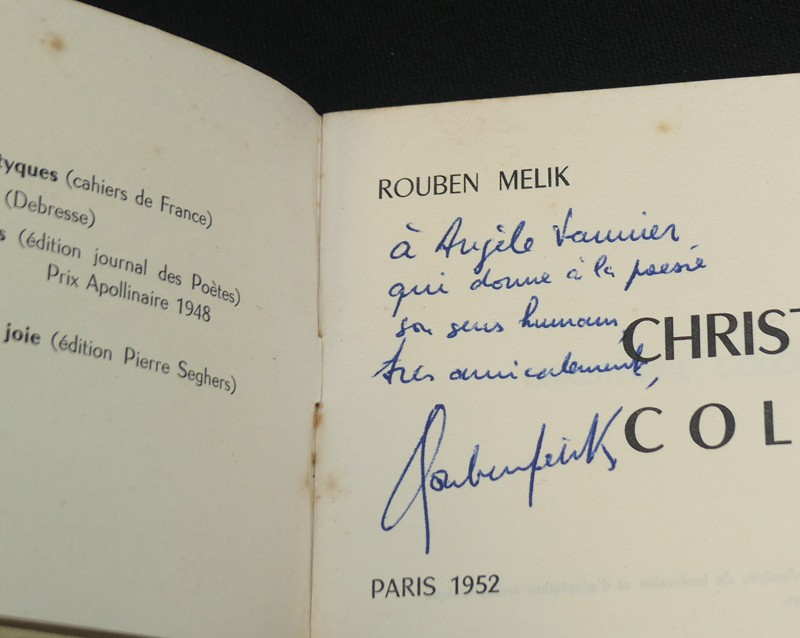 tyques (cahiers de France)
(Debresse)
s (édition journal des Poètes)
Prix Apollinaire 1948
joie (édition Pierre Seghers)
ROUBEN MELIK
à Angèle Vannier
qui donne à la poesie
son sens humain,
très amicalement,
CHRIST
COL
RoubenMelik
PARIS 1952